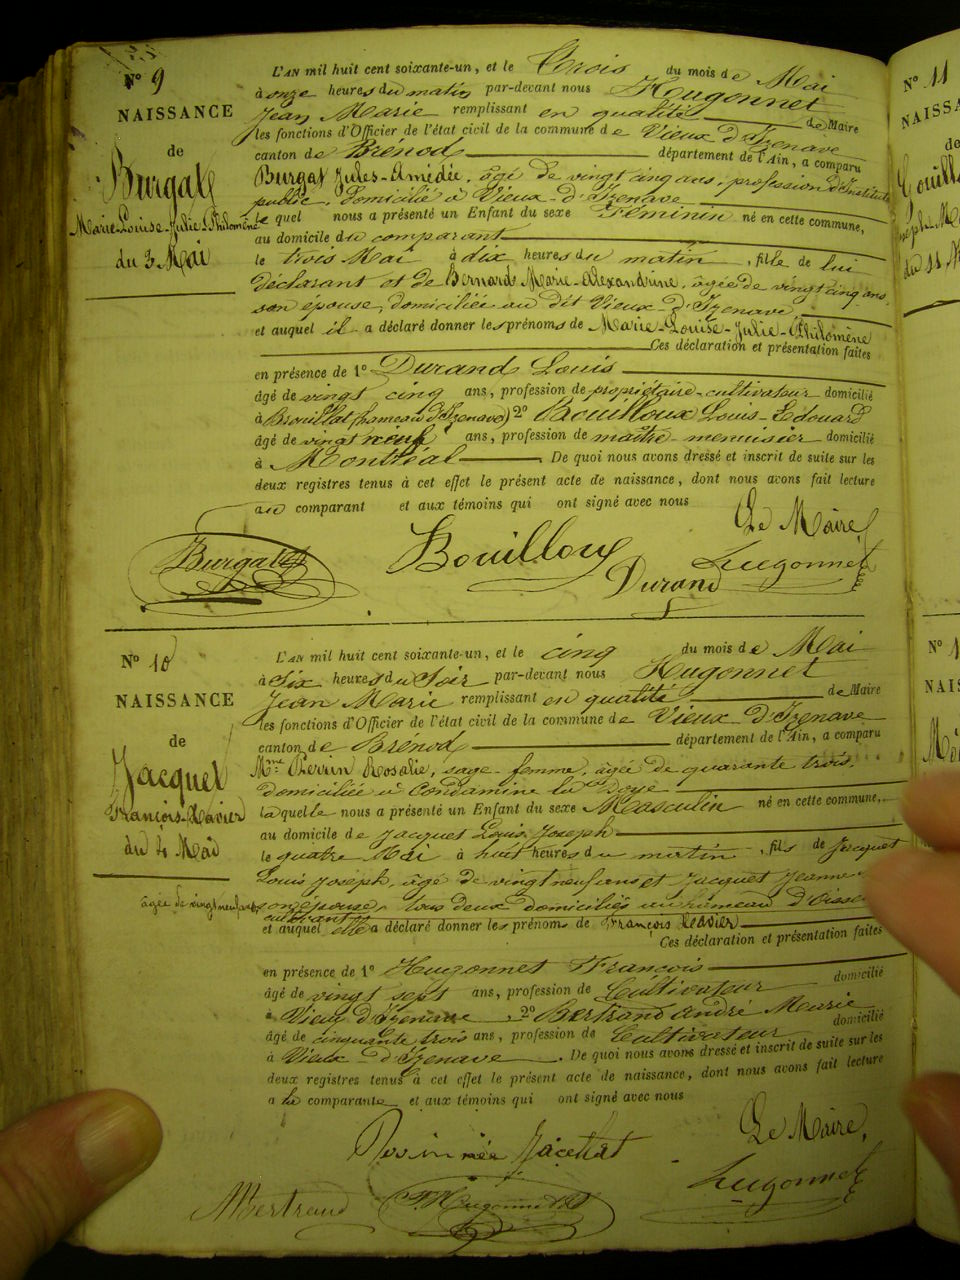 N° 9
NAISSANCE
de
Burgat
Marie-Louise-Julie-Philomène
du 3 Mai
L'AN mil huit cent soixante-un, et le Trois du mois de Mai
à onze heures du matin par-devant nous Hugonnet
Jean Marie remplissant en qualité de Maire
les fonctions d'Officier de l'état civil de la commune de Vieux d'Izenave
canton de Brénod département de l'Ain, a comparu
Burgat Jules-Amédée, âgé de vingt cinq ans, profession d'Institut
public, domicilié à Vieux-d'Izenave
le quel nous a présenté un Enfant du sexe Féminin né en cette commune,
au domicile du comparant
le trois Mai à dix heures du matin, fille de lui
déclarant et de Bernard Marie-Alexandrine, âgée de vingt cinq ans
son épouse, domiciliée au dit Vieux-d'Izenave,
et auquel il a déclaré donner les prénoms de Marie-Louise-Julie-Philomène
Ces déclaration et présentation faites
en présence de 1° Durand Louis
âgé de vingt cinq ans, profession de propriétaire-cultivateur domicilié
à Brouillat (hameau d'Izenave) 2° Bouilloux Louis-Edouard
âgé de vingt neuf ans, profession de maître-menuisier domicilié
à Montréal De quoi nous avons dressé et inscrit de suite sur les
deux registres tenus à cet effet le présent acte de naissance, dont nous avons fait lecture
au comparant et aux témoins qui ont signé avec nous
Le Maire
Burgat Bouilloux Durand Hugonnet
N° 10
NAISSANCE
de
Jacquet
François-Xavier
du 4 Mai
L'AN mil huit cent soixante-un, et le cinq du mois de Mai
à Six heures du Soir par-devant nous Hugonnet
Jean Marie remplissant en qualité de Maire
les fonctions d'Officier de l'état civil de la commune de Vieux d'Izenave
canton de Brénod département de l'Ain, a comparu
Mme Perrin Rosalie, sage-femme, âgée de quarante trois,
domiciliée à Condamine la Doye
laquelle nous a présenté un Enfant du sexe Masculin né en cette commune,
au domicile de Jacquet Louis Joseph
le quatre Mai à huit heures du matin, fils de Jacquet
Louis Joseph, âgé de vingt neuf ans et Jacquet Jeanne
âgée de vingt neuf ans, son épouse, tous deux domiciliés au hameau
cultivants
et auquel elle a déclaré donner les prénoms de François Xavier
Ces déclaration et présentation faites
en présence de 1° Hugonnet François domicilié
âgé de vingt sept ans, profession de Cultivateur
à Vieux d'Izenave, 2° Bertrand André Marie
âgé de cinquante trois ans, profession de Cultivateur domicilié
à Vieux-d'Izenave. De quoi nous avons dressé et inscrit de suite sur les
deux registres tenus à cet effet le présent acte de naissance, dont nous avons fait lecture
a la comparante et aux témoins qui ont signé avec nous
Le Maire,
Hugonnet
Bertrand F. Hugonnet
N° 11
NAISSANCE
de